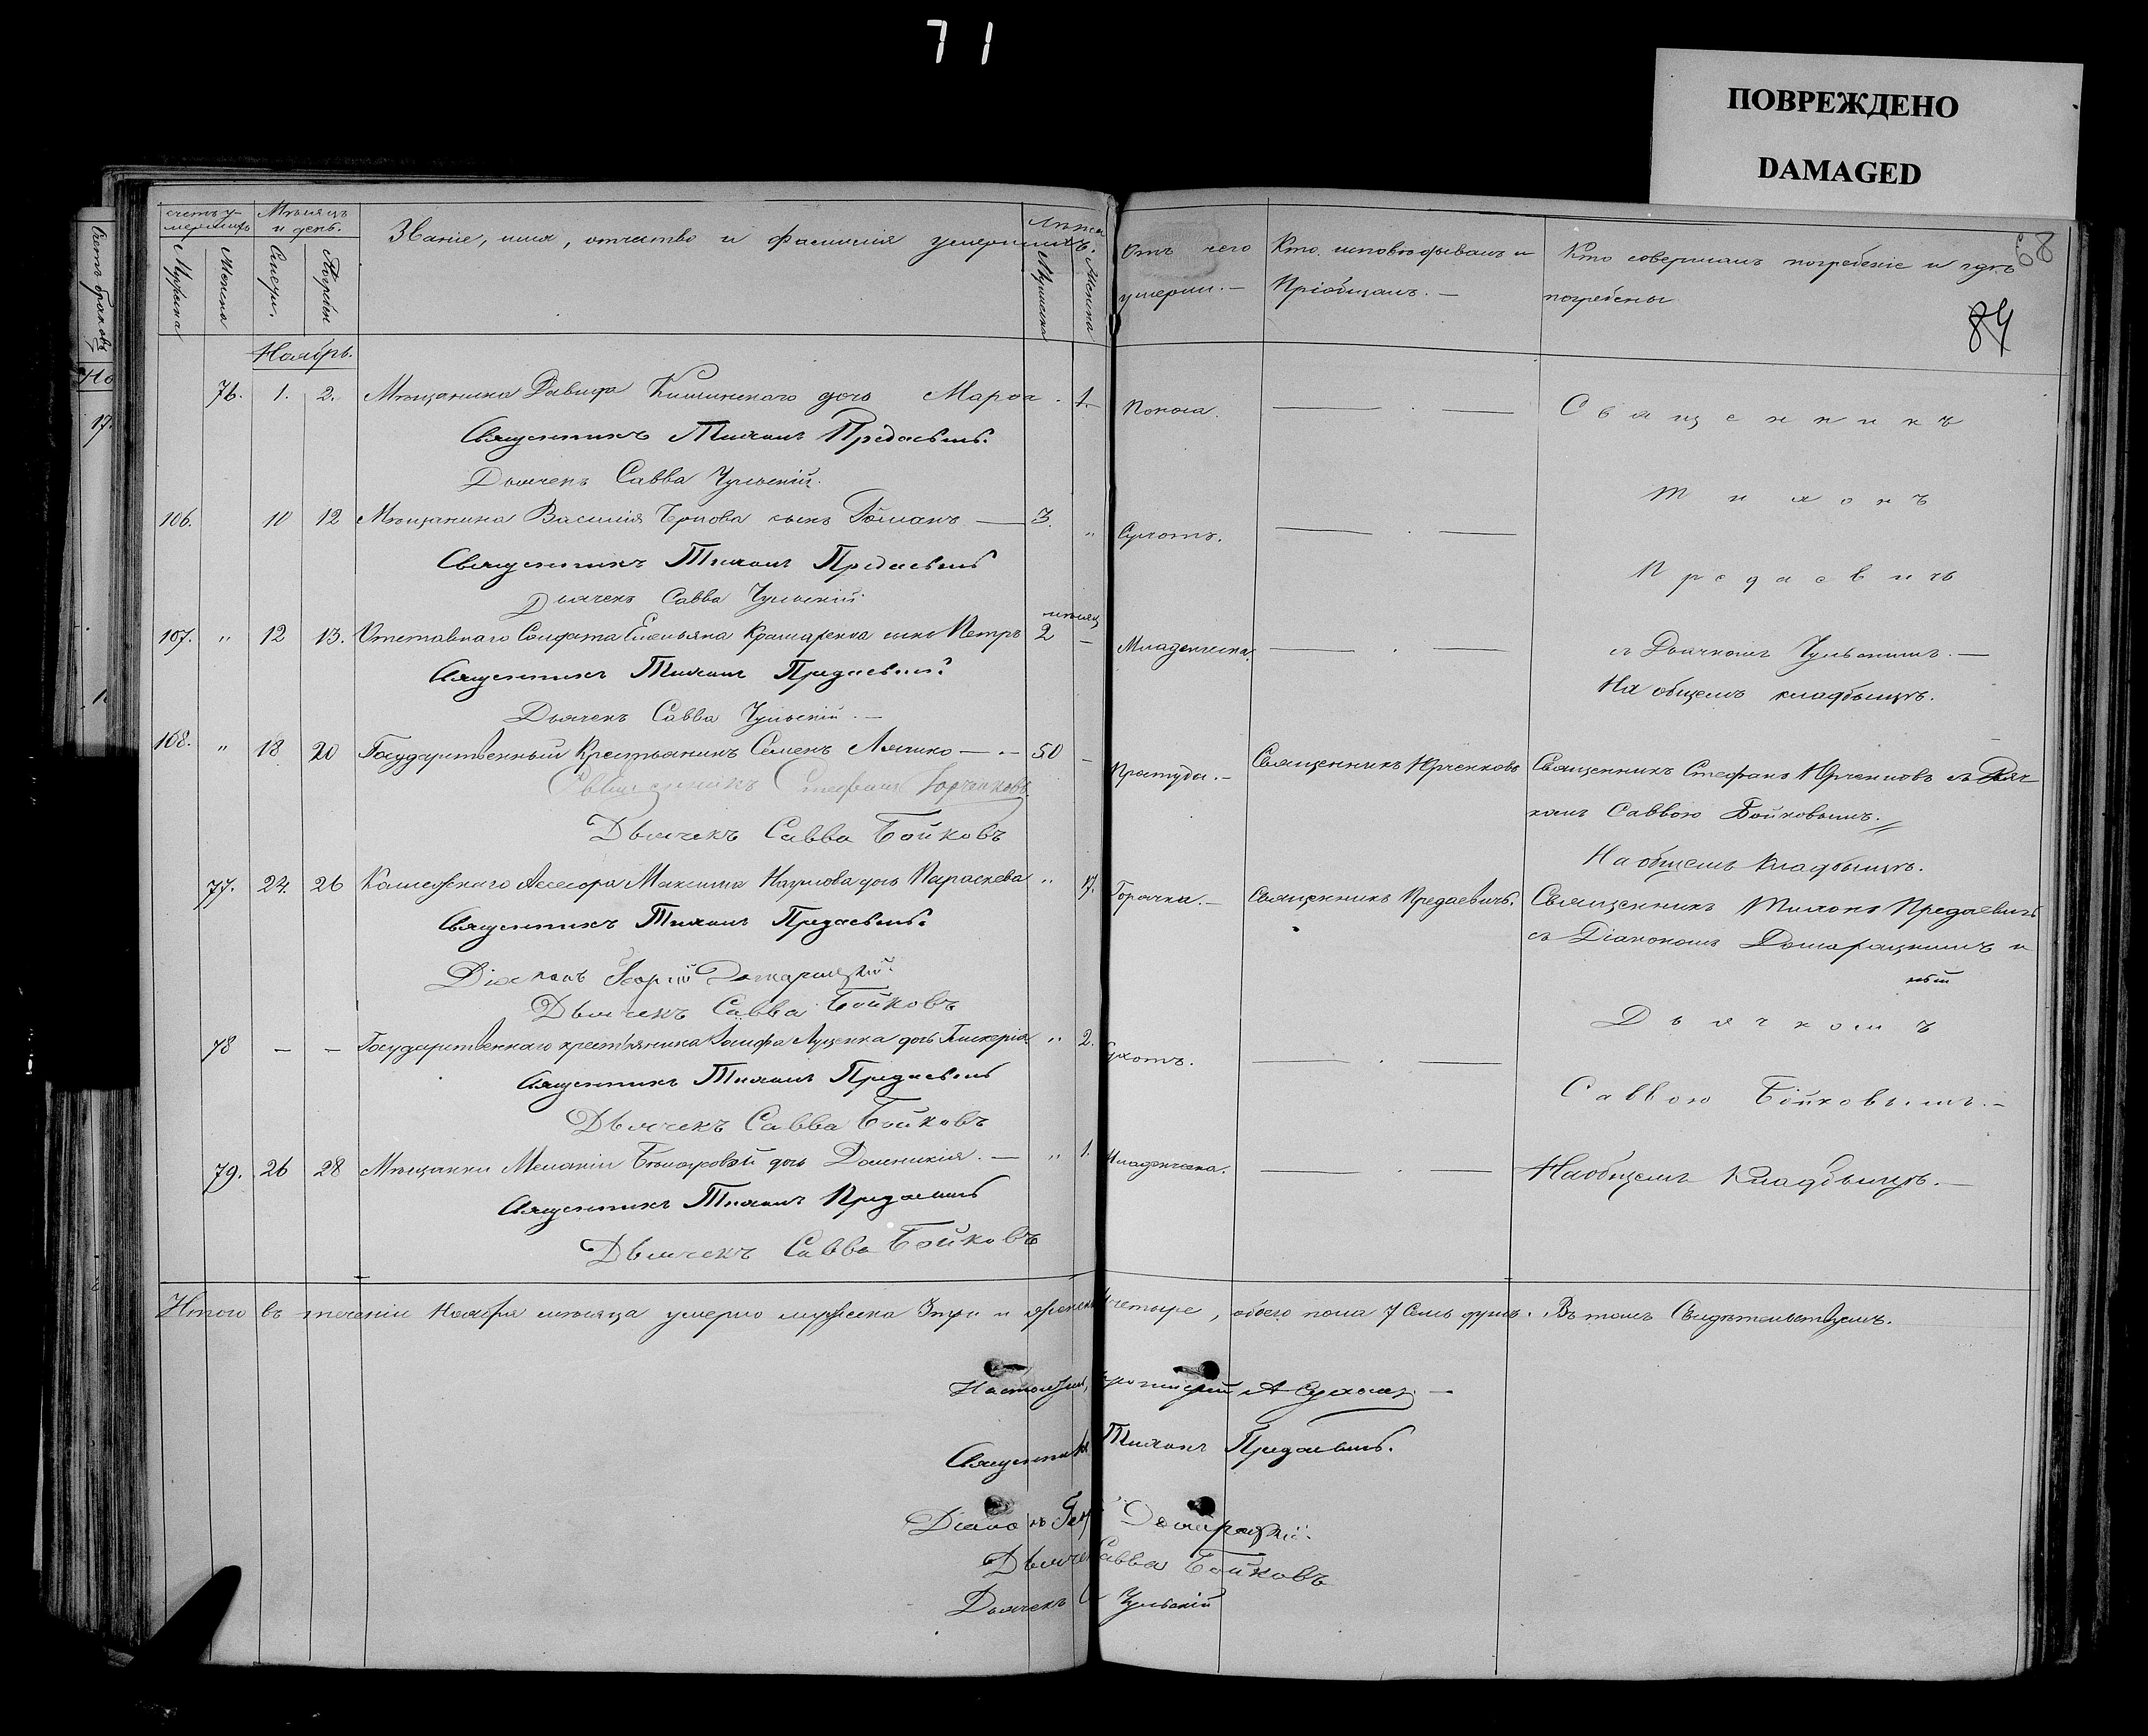 71
ПОВРЕЖДЕНО
DAMAGED
68
84
Счетъ умершихъ
Мѣсяцъ и день.
Званіе, имя, отчество и фамилія умершихъ.
Лѣта
Отъ чего умерли. —
Кто исповѣдывалъ и Пріобщалъ. —
Кто совершалъ погребеніе и гдѣ погребены
Мужеска
Женска
Смерти.
Мужеска
Женска
Счетъ браковъ
Ноябрь.
76. 1. 2. Мѣщанина Давида дочь Марѳа . 1.
Священникъ Тихонъ Предаевичъ.
Дьячекъ Савва Чульскій.
106. 10 12 Мѣщанина Василія сынъ Романъ — 3. "
Сухоты.
Священникъ Тихонъ Предаевичъ
Дьячекъ Савва Чульскій.
107. " 12 13. Отставнаго Солдата Емельяна сынъ Петръ мѣсяц 2 —
Младенческа.
Священникъ Тихонъ Предаевичъ
Дьячекъ Савва Чульскій. —
Священникъ
Тихонъ
Предаевичъ
съ Дьячкомъ Чульскимъ. —
На общемъ кладбищѣ.
108. " 18 20 Государственный Крестьянинъ Семенъ — 50 —
Простуды. —
Священникъ Юрченковъ
Священникъ Стефанъ Юрченковъ съ Дьячкомъ Саввою Бойковымъ.
На общемъ Кладбищѣ.
Священникъ Стефанъ Юрченковъ
Дьячекъ Савва Бойковъ
77. 24. 26 Колежскаго Асесора Максима Наумова дочь Параскева " 17.
Горячка. —
Священникъ Предаевичъ.
Священникъ Тихонъ Предаевичъ
съ Діакономъ Домарацкимъ и
Священникъ Тихонъ Предаевичъ.
Діаконъ Георгій Домарацкій.
Дьячекъ Савва Бойковъ
78 — — Государственнаго крестьянина дочь Гликерія " 2.
Сухоты.
Дьячкомъ
Саввою Бойковымъ. —
Священникъ Тихонъ Предаевичъ
Дьячекъ Савва Бойковъ
79. 26 28 Мѣщанки Меланіи дочь Домникія. — " 1.
Младенческа.
На общемъ Кладбищѣ. —
Священникъ Тихонъ Предаевичъ
Дьячекъ Савва Бойковъ
Итого въ теченіи Ноября мѣсяца умерло мужеска 3 три и женска четыре, обоего пола 7 Семь душъ. Въ томъ Свидѣтельствуемъ.
Священникъ Тихонъ Предаевичъ.
Діаконъ Домарацкій.
Дьячекъ Савва Бойковъ
Дьячекъ Чульскій